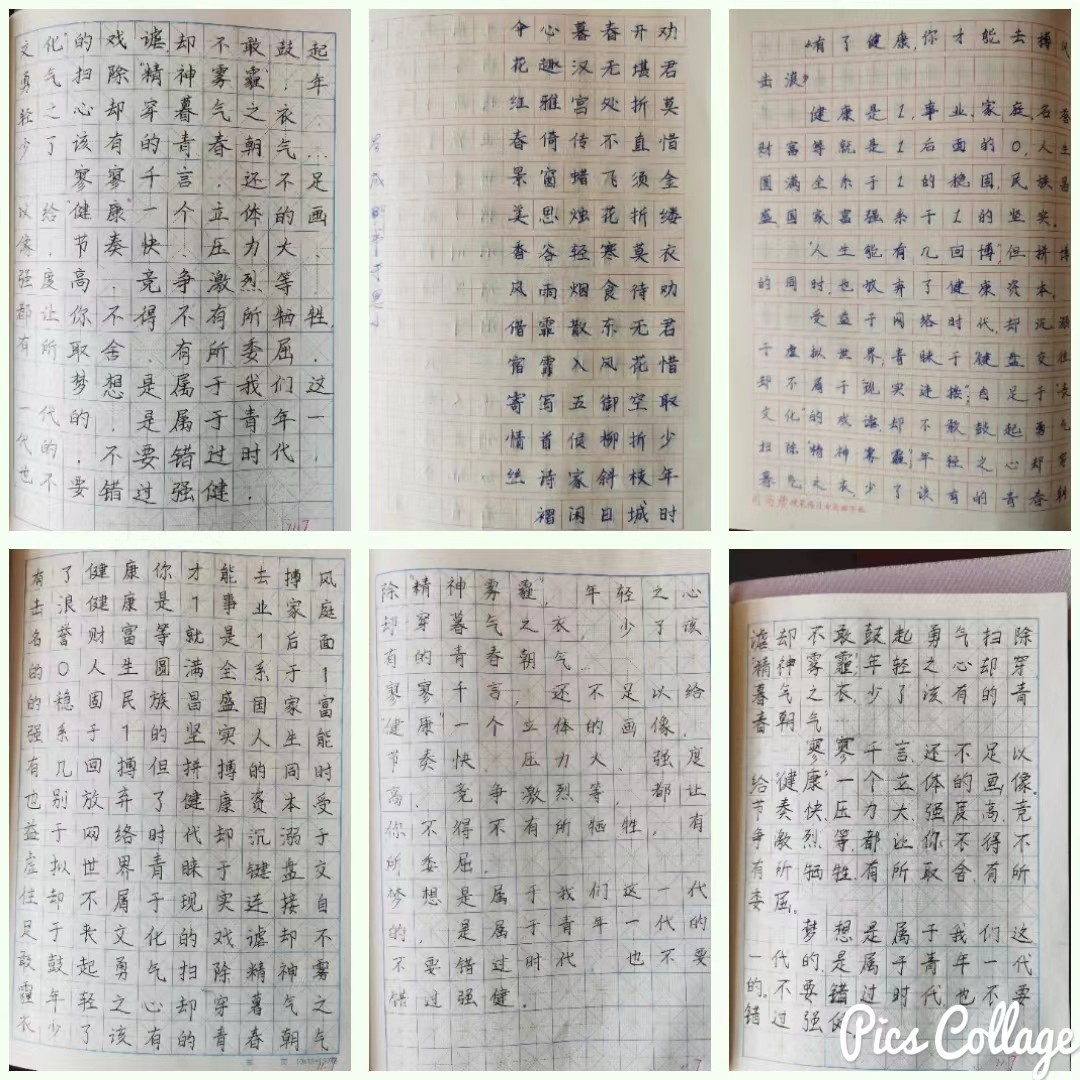 文化"的戏谑,却不敢鼓起
勇气扫除"精神雾霾",年
轻之心却穿暮气之衣,
少了该有的青春朝气…
寥寥千言,还不足
以给"健康"一个立体的画
像,节奏快、压力大、
强度高、竞争激烈等,
都让你不得不有所牺牲,
有所取舍、有所委屈。
梦想是属于我们这
一代的,是属于青年一
代的,不要错过时代,
也不要错过强健。
劝君莫惜金缕衣劝君惜取少年时
开堪折直须折莫待无花空折枝城
春无处不飞花寒食东风御柳斜日
暮汉宫传蜡烛轻烟散入五侯家闲
心趣雅倚窗思谷雨霏霏写首诗褶
花红春景美香风借宿寄情丝
有了健康,你才能去搏风
击浪
健康是1,事业、家庭、名誉
财富等就是1后面的0,人生
圆满全系于1的稳固,民族昌
盛,国家富强系于1的坚实。
"人生能有几回搏",但拼搏
的同时,也放弃了健康资本。
受益于网络时代,却沉溺
于虚拟世界,青睐于键盘交往
却不属于现实连接,自足于"丧
文化"的戏谑却不敢鼓起勇气
扫除"精神雾霾",年轻之心却穿
暮气之衣,少了该有的青春朝
有了健康你才能去搏风
击浪健康是1事业家庭
名誉财富等就是1后面
的0人生圆满全系于1
的稳固民族昌盛国家富
强系于1的坚实人生能
有几回搏但拼搏的同时
也别放弃了健康资本受
益于网络时代却沉溺于
虚拟世界青睐于键盘交
往却不属于现实连接自
足于丧文化的戏谑却不
敢鼓起勇气扫除精神雾
霾年轻之心却穿暮气之
衣少了该有的青春朝气
除"精神雾霾",年轻之心
却穿暮气之衣,少了该
有的青春朝气…
寥寥千言,还不足以给
"健康"一个立体的画像,
节奏快、压力大、强度
高、竞争激烈等,都让
你不得不有所牺牲,有
所委屈。
梦想是属于我们这一代
的,是属于青年一代的
不要错过时代,也不要
错过强健。
谑却不敢鼓起勇气扫除
"精神雾霾",年轻之心却穿
暮气之衣,少了该有的青
春朝气…
寥寥千言,还不足以
给"健康"一个立体的画像,
节奏快、压力大、强度高、竞
争激烈等,都让你不得不
有所牺牲,有所取舍,有所
委屈。
梦想是属于我们这
一代的,是属于青年一代
的,不要错过时代,也不要
错过强健
Pics Collage